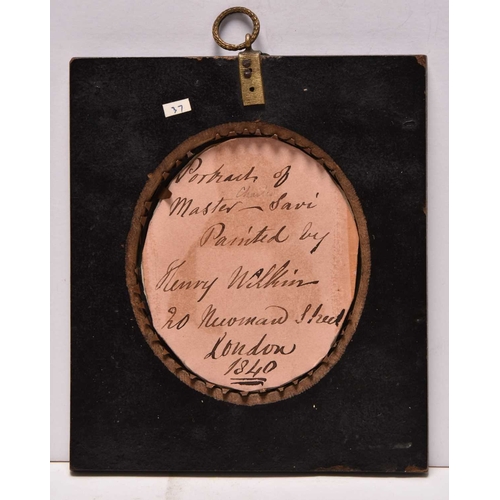 37
Portrait of
Master Savi
Painted by
Henry Wilkin
20 Newman Street
London
1840